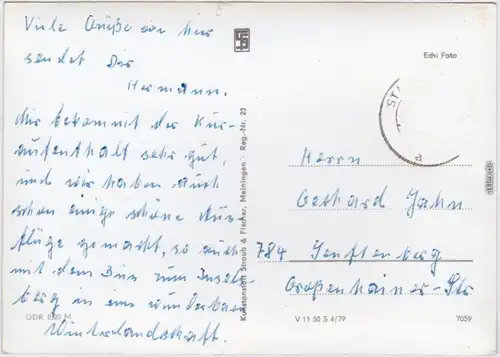 Viele Grüße von hier
sendet Dir
Hermann.
Mir bekommt der Kur-
aufenthalt sehr gut,
und wir haben auch
schon einige schöne Aus-
flüge gemacht, so auch
mit dem Bus zum Insel-
berg in eine wunderbare
Winterlandschaft.
DDR 0,20 M
Kunstanstalt Straub & Fischer, Meiningen · Reg.-Nr. 23
Echt Foto
ST
a
Herrn
Gerhard Jahn
784 Senftenberg
Großenhainer-Str
V 11 50 S 4/79
7059